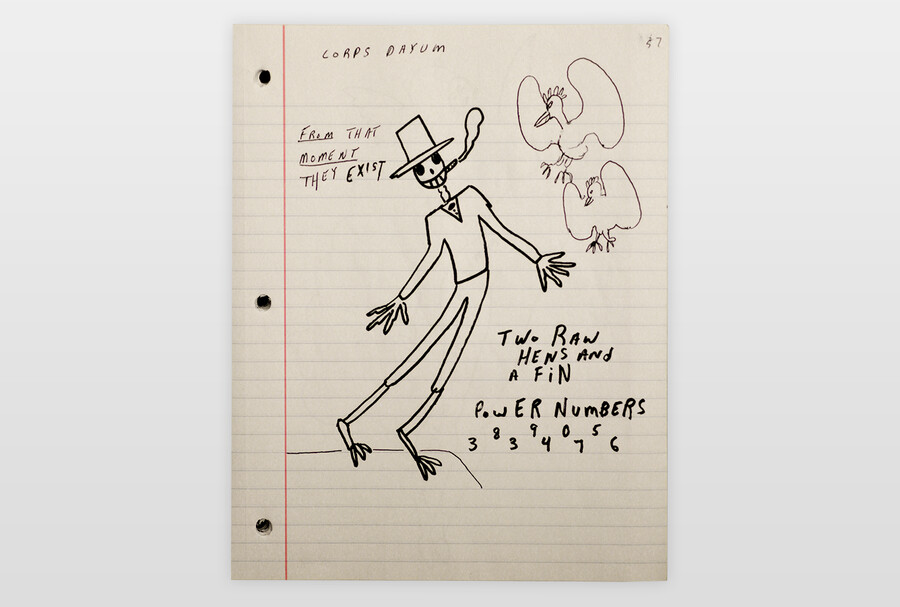 CORPS DAYUM
$7
FROM THAT
MOMENT
THEY EXIST
TWO RAW
HENS AND
A FiN
POWER NUMBERS
3 8 3 9 4 0 7 5 6